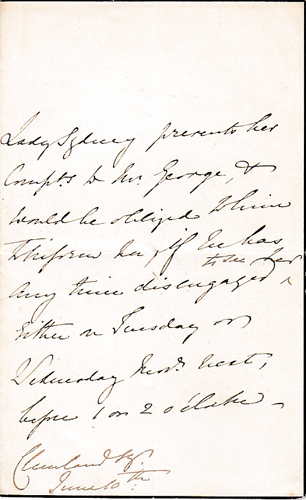 Lady Sydney presents her
Compts to Mr. George, &
would be obliged to him
to inform her, if he has
any time disengaged ^ to see her
either on Tuesday or
Wednesday Morg. next,
before 1 or 2 o'clock –
Cleveland Sq.
June 10th